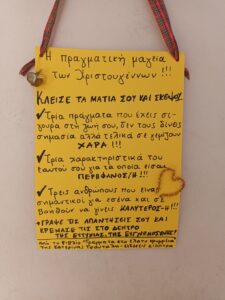 Η πραγματική μαγεία
των Χριστουγέννων !!!
ΚΛΕΙΣΕ ΤΑ ΜΑΤΙΑ ΣΟΥ ΚΑΙ ΣΚΕΨΟΥ
✓Τρία πράγματα που έχεις σι-
γουρα στη ζωή σου, δεν τους δίνεις
σημασία αλλά τελικά σε γεμίζουν
ΧΑΡΑ !!!
✓Τρία χαρακτηριστικά του
εαυτού σου για τα οποία είσαι
ΠΕΡΗΦΑΝΟΣ/Η !!!
✓Τρεις ανθρώπους που είναι
σημαντικοί για εσένα και σε
βοηθούν να γίνεις ΚΑΛΥΤΕΡΟΣ-Η !!!
+ΓΡΑΨΕ ΤΙΣ ΑΠΑΝΤΗΣΕΙΣ ΣΟΥ ΚΑΙ
ΚΡΕΜΑΣΕ ΤΙΣ ΣΤΟ ΔΕΝΤΡΟ
ΤΗΣ ΕΥΤΥΧΙΑΣ, ΤΗΣ ΕΥΓΝΩΜΟΣΥΝΗΣ!
από το βιβλίο